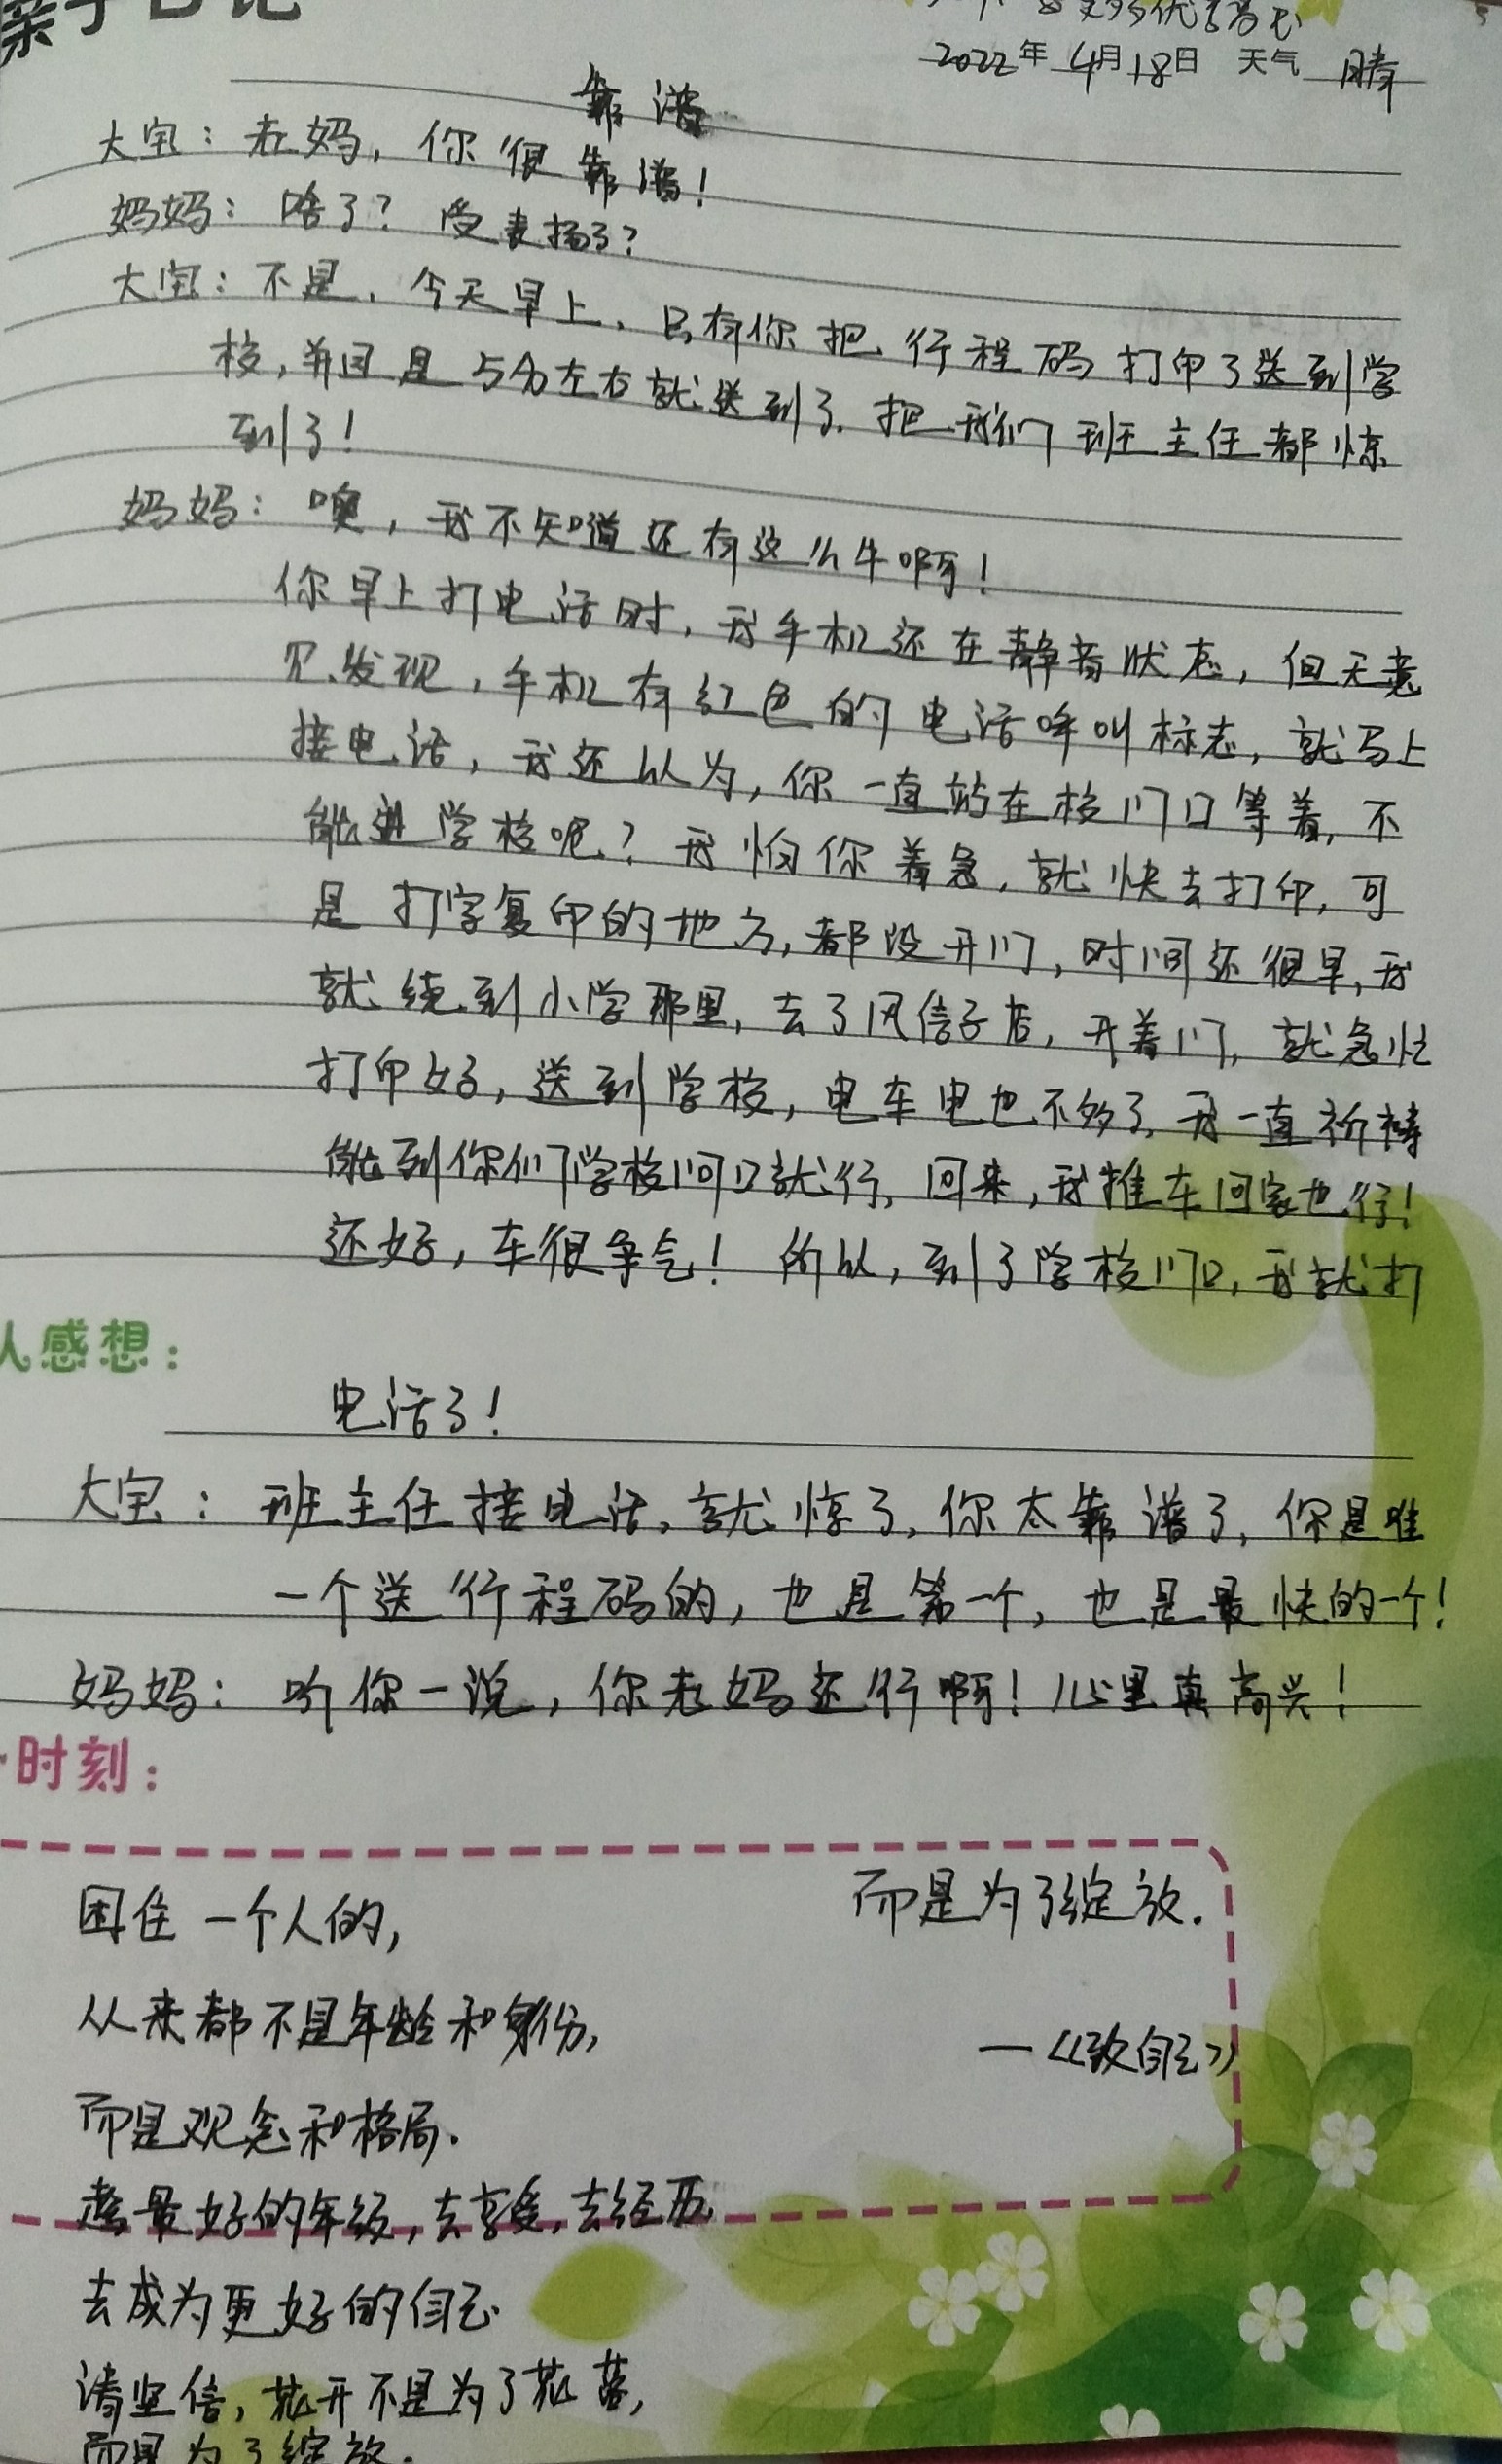 亲子日记
2022年 4月18日 天气 晴
靠谱
大宝：老妈，你很靠谱！
妈妈：啥了？受表扬了？
大宝：不是，今天早上，只有你把行程码打印了送到学
校，并且是5分左右就送到了，把我们班主任都惊
到了！
妈妈：噢，我不知道还有这么牛啊！
你早上打电话时，我手机还在静音状态，但无意
见发现，手机有红色的电话呼叫标志，就马上
接电话，我还以为，你一直站在校门口等着，不
能进学校呢？我怕你着急，就快去打印，可
是打字复印的地方，都没开门，时间还很早，我
就绕到小学那里，去了风信子店，开着门，就急忙
打印好，送到学校，电车电也不多了，我一直祈祷
能到你们学校门口就行，回来，我推车回家也行！
还好，车很争气！所以，到了学校门口，我就打
人感想：
电话了！
大宝：班主任接电话，就惊了，你太靠谱了，你是唯
一个送行程码的，也是第一个，也是最快的一个！
妈妈：听你一说，你老妈还行啊！心里真高兴！
时刻：
困住一个人的，
从来都不是年龄和身份，
而是观念和格局．
趁最好的年级，去享受，去经历，
去成为更好的自己
请坚信，花开不是为了花落，
而是为了绽放．
而是为了绽放．
—《致自己》